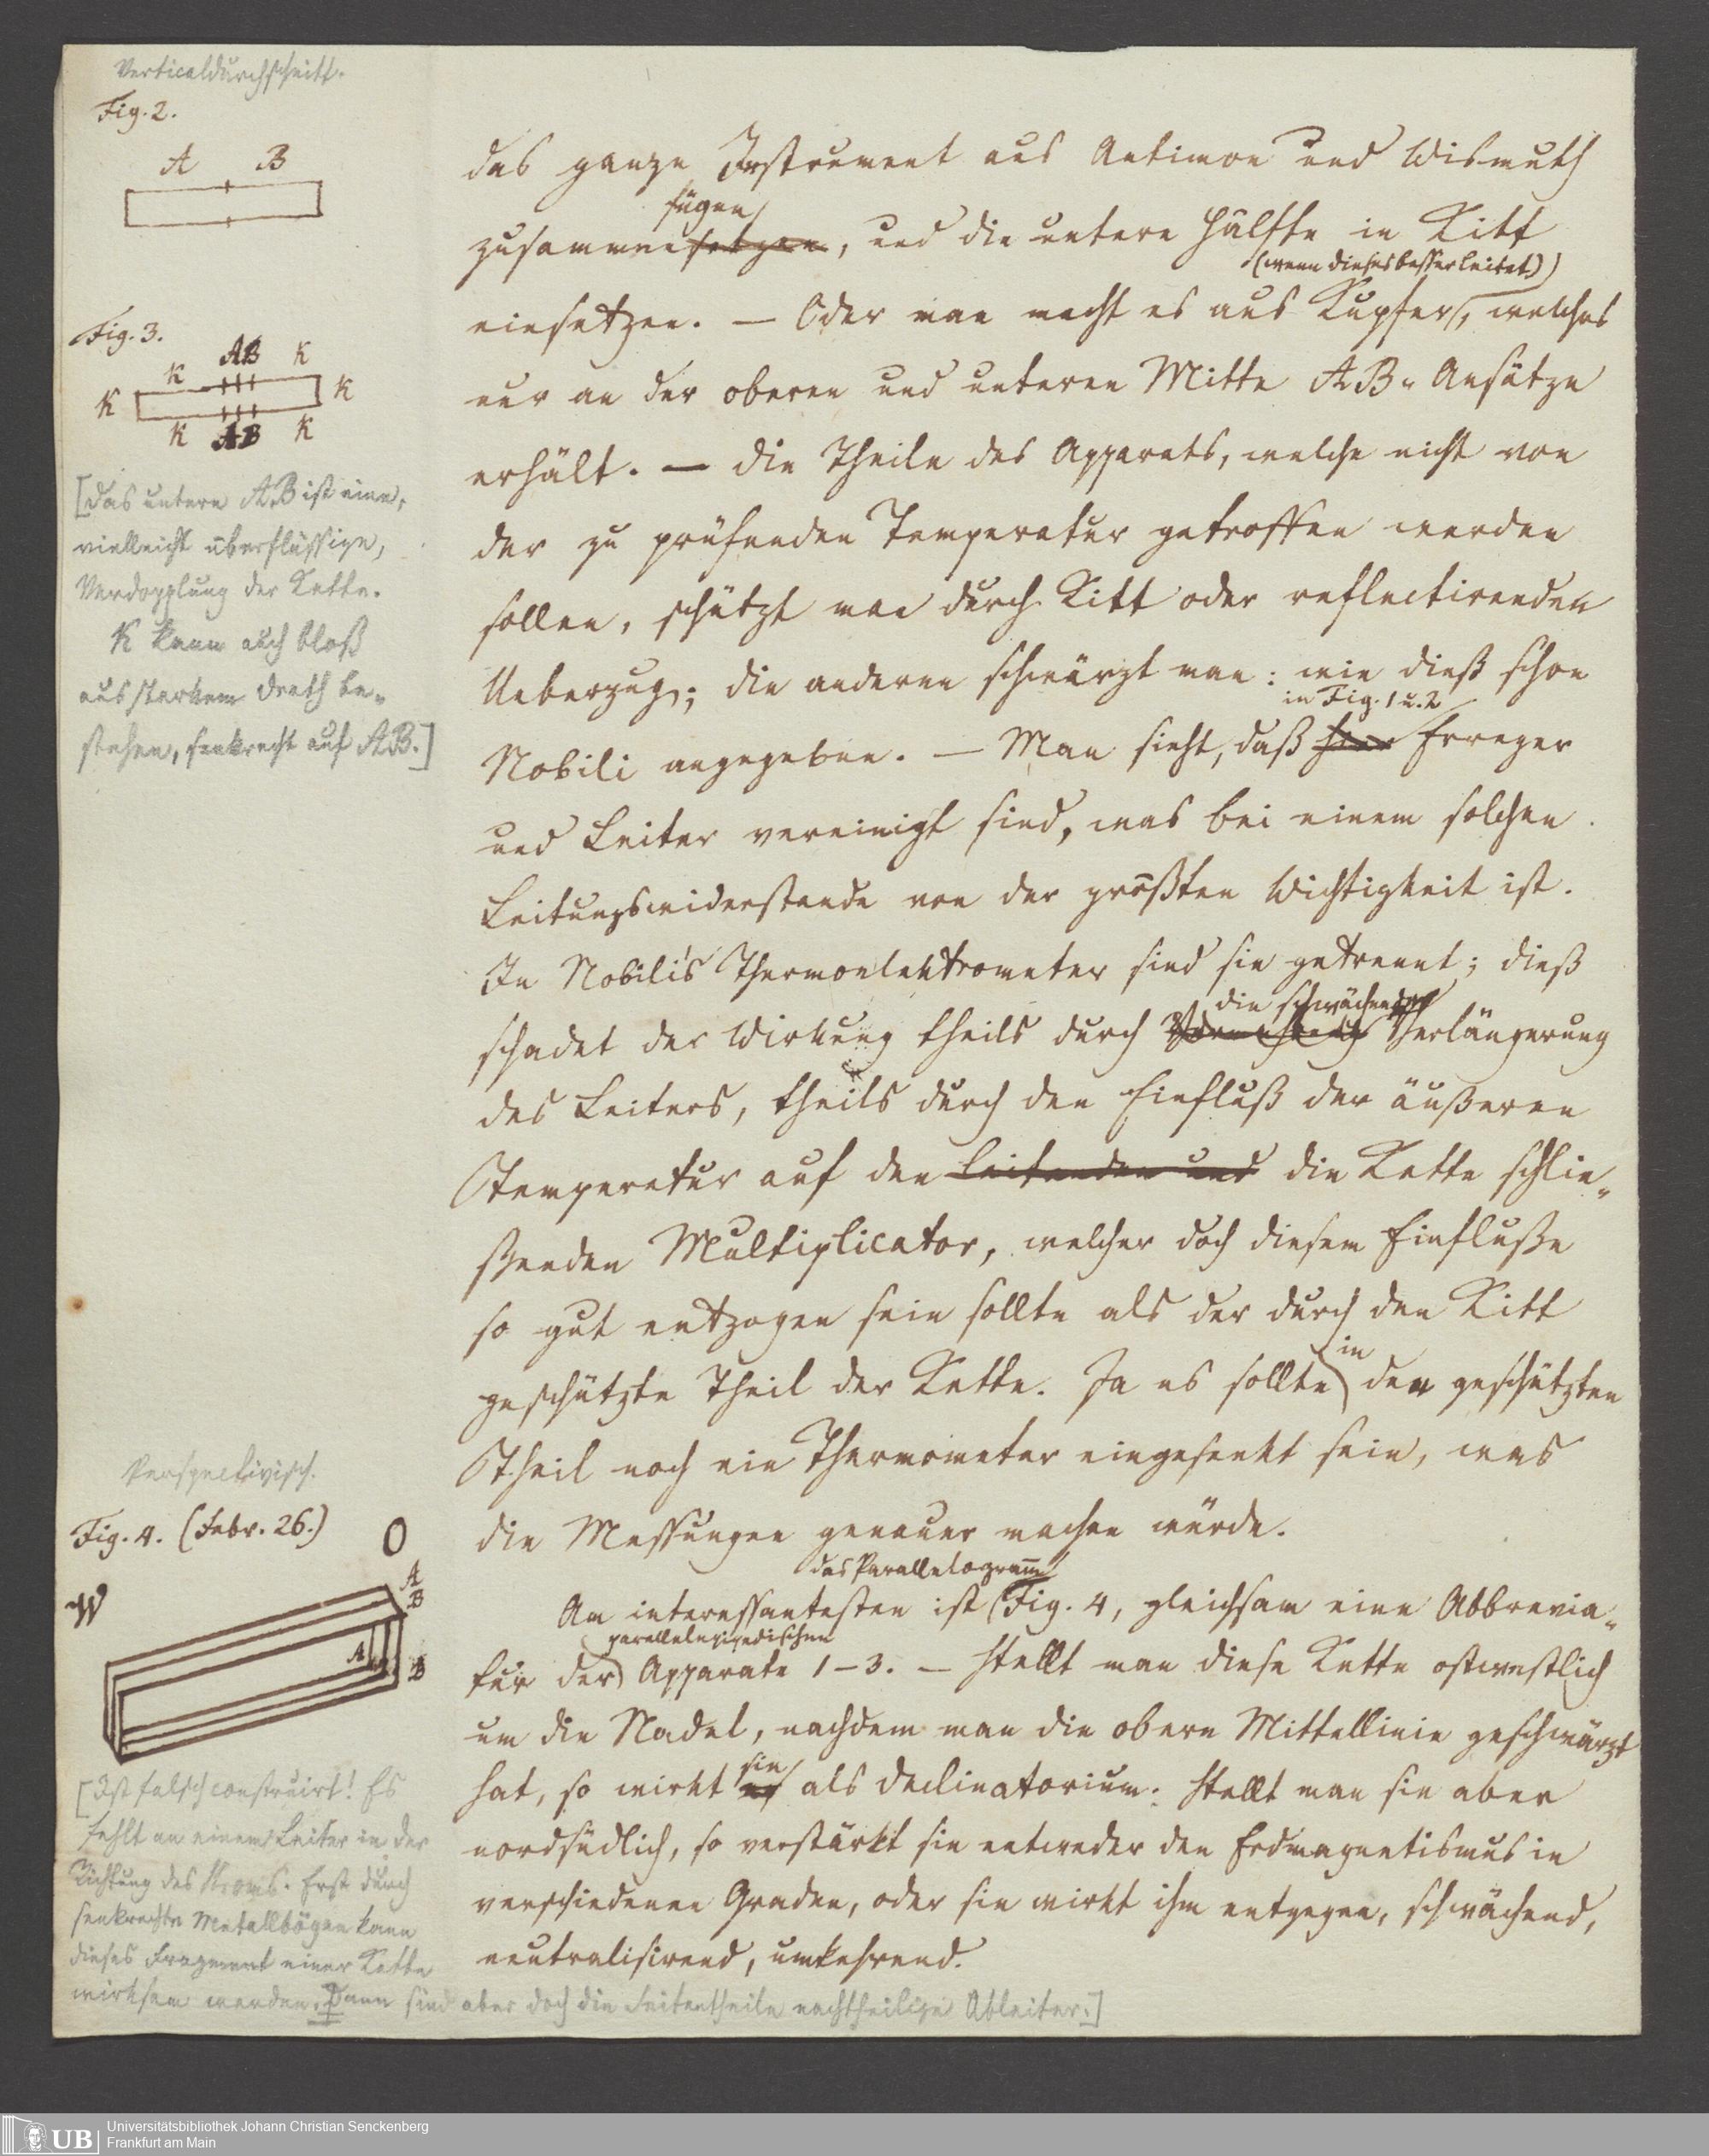 Verticaldurchschnitt.
Fig. 2.
A B
Fig. 3.
AB K
K
K K
K AB K
[das untere AB ist eine,
vielleicht überflüssige,
Verdopplung der Kette.
K kann auch bloß
aus starkem Drath be-
stehen, senkrecht auf AB.]
Perspectivisch.
Fig. 4. (Febr. 26.)
O
W
A
B
A B
[Ist falsch construirt! Es
fehlt an einem Leiter in der
Richtung des Stroms. Erst durch
senkrechte Metallbögen kann
dieses Fragment einer Kette
wirksam werden. Dann sind aber doch die Seitentheile nachtheilige Ableiter.]
das ganze Instrument aus Antimon und Wismuth
fügen
zusammensetzen, und die untere Hälfte in Kitt
(wenn dieses besser leitet)
einsetzen. — Oder man macht es aus Kupfer, welches
nur an der oberen und unteren Mitte AB-Ansätze
erhält. — Die Theile des Apparats, welche nicht von
der zu prüfenden Temperatur getroffen werden
sollen, schützt man durch Kitt oder reflectirenden
Ueberzug; die anderen schwärzt man: wie dieß schon
in Fig. 1 u. 2
Nobili angegeben. — Man sieht, daß hier Erreger
und Leiter vereinigt sind, was bei einem solchen
Leitungswiderstande von der größten Wichtigkeit ist.
In Nobili's Thermoelektrometer sind sie getrennt; dieß
die schwächende
schadet der Wirkung theils durch Verlängerung
des Leiters, theils durch den Einfluß der äußeren
Temperatur auf den leitenden und die Kette schlie-
ßenden Multiplicator, welcher doch diesem Einfluße
so gut entzogen sein sollte als der durch den Kitt
in
geschützte Theil der Kette. Ja es sollte den geschützten
Theil noch ein Thermometer eingesenkt sein, was
die Messungen genauer machen würde.
das Parallelogramm
Am interessantesten ist Fig. 4, gleichsam eine Abbrevia-
parallelepipedischen
tur der Apparate 1–3. — Stellt man diese Kette ostwestlich
um die Nadel, nachdem man die obere Mittellinie geschwärzt
sie
hat, so wirkt es als Declinatorium. Stellt man sie aber
nordsüdlich, so verstärkt sie entweder den Erdmagnetismus in
verschiedenen Graden, oder sie wirkt ihm entgegen, schwächend,
neutralisirend, umkehrend.
UB
Universitätsbibliothek Johann Christian Senckenberg
Frankfurt am Main